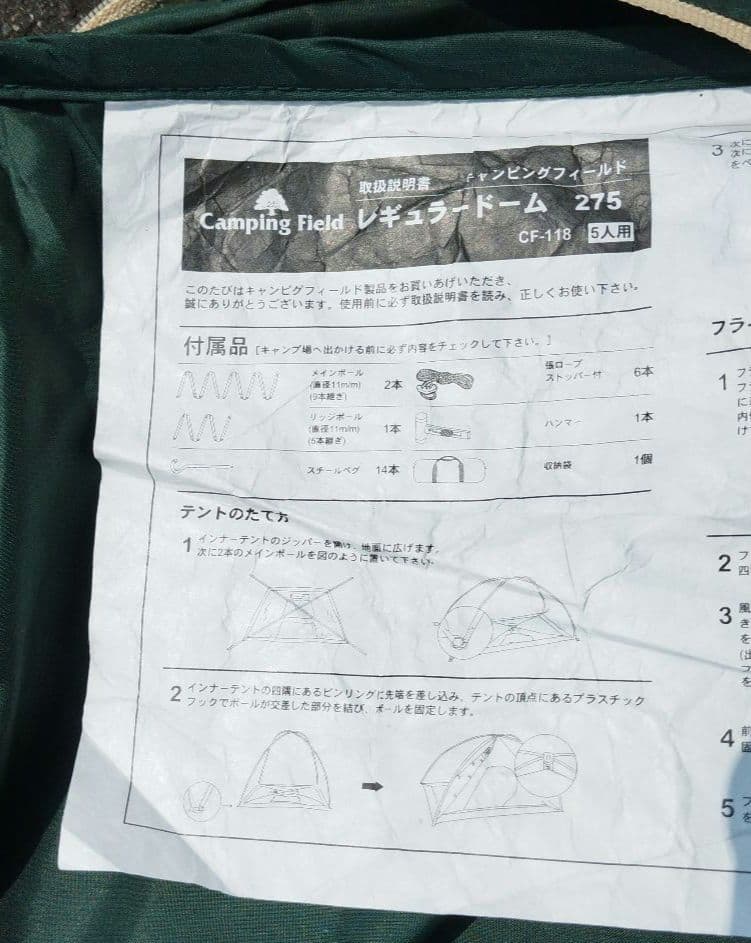 Camping Field
取扱説明書 キャンピングフィールド
レギュラードーム 275
CF-118 5人用
このたびはキャンピグフィールド製品をお買いあげいただき、
誠にありがとうございます。使用前に必ず取扱説明書を読み、正しくお使い下さい。
付属品 [キャンプ場へ出かける前に必ず内容をチェックして下さい。]
メインポール
(直径11m/m)
(9本継ぎ)
2本
張ロープ
ストッパー付
6本
リッジポール
(直径11m/m)
(5本継ぎ)
1本
ハンマー
1本
スチールペグ
14本
収納袋
1個
テントのたて方
1 インナーテントのジッパーを開け、地面に広げます。
次に2本のメインポールを図のように置いて下さい。
2 インナーテントの四隅にあるピンリングに先端を差し込み、テントの頂点にあるプラスチック
フックでポールが交差した部分を結び、ポールを固定します。
3 次に
次に
をペ
フライ
1 フラ
フラ
に
内
け
2 フ
四
3 風
き
を
(出
フ
を
4 前
固
5 フ
を